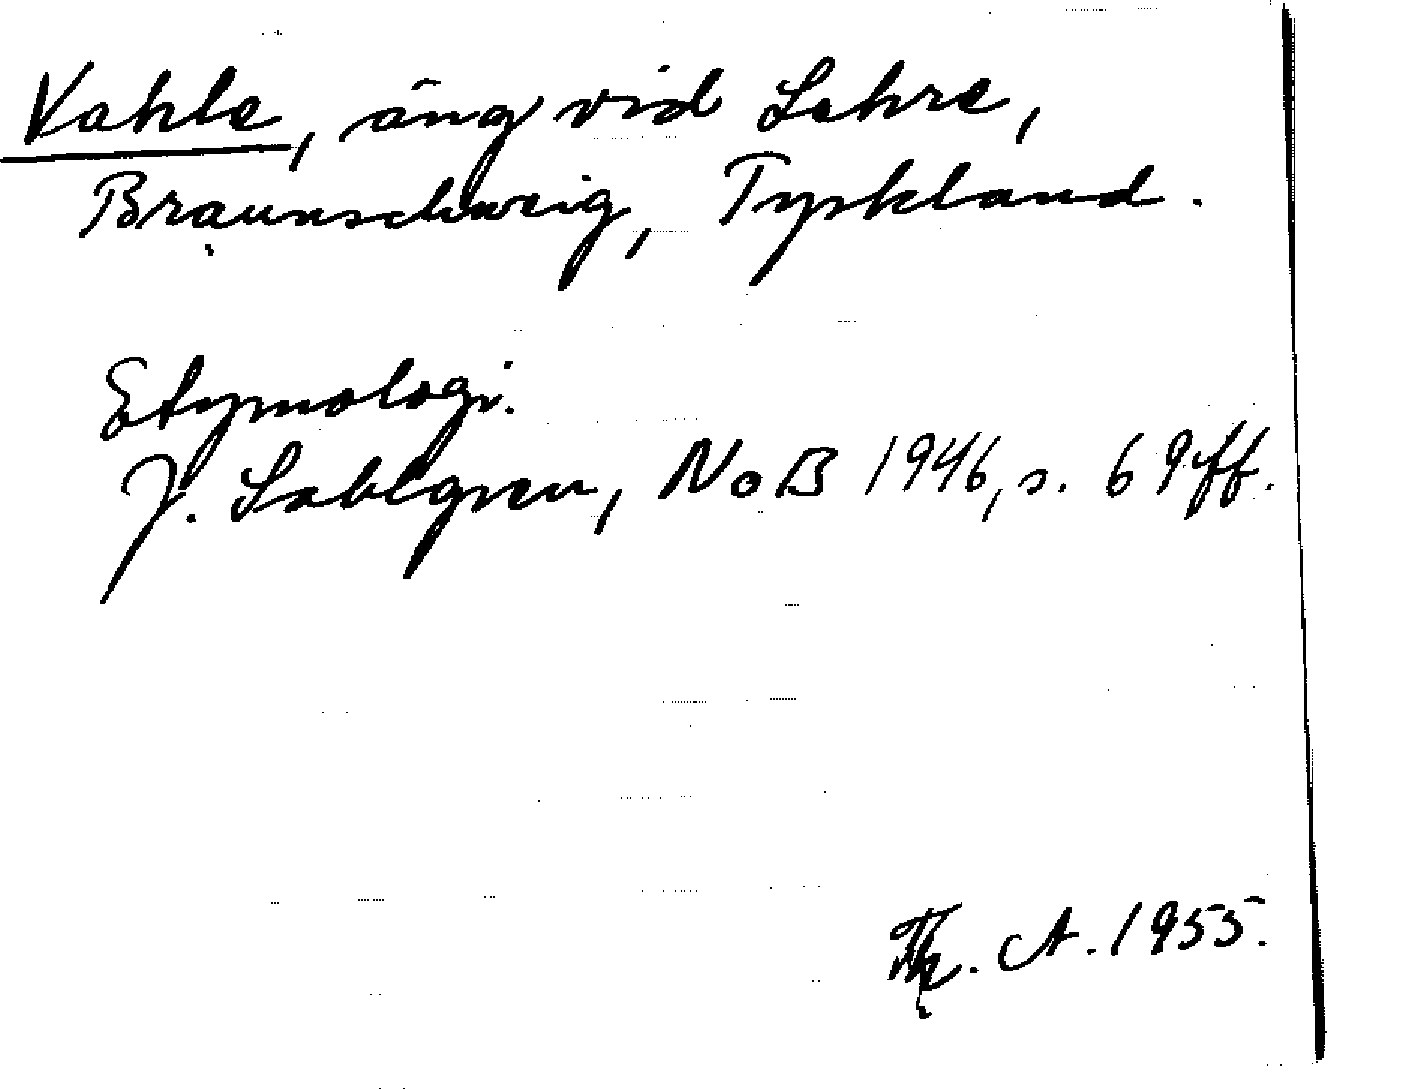 Vahle, äng vid Lehre,
Braunschweig, Tyskland.
Etymologi.
J. Sahlgren, NoB 1946, s. 69 ff.
Th. A. 1955.